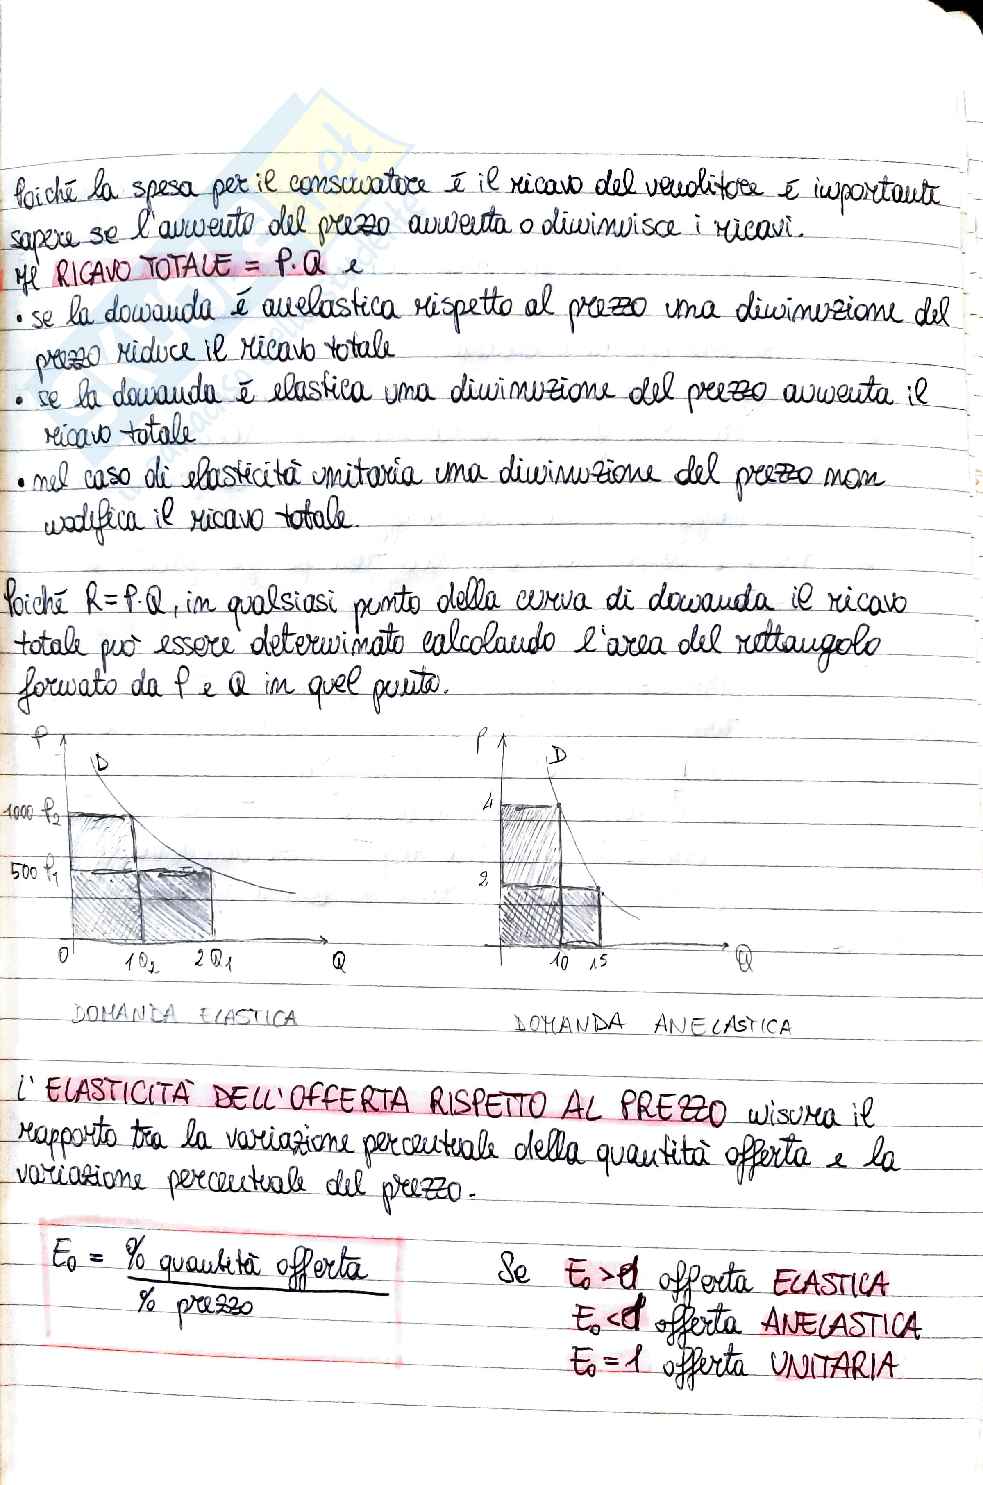 Poiché la spesa per il consumatore é il ricavo del venditore é importante
sapere se l'aumento del prezzo aumenta o diminuisce i ricavi.
Il RICAVO TOTALE = P.Q e
• se la domanda é anelastica rispetto al prezzo una diminuzione del
prezzo riduce il ricavo totale
• se la domanda é elastica una diminuzione del prezzo aumenta il
ricavo totale
• nel caso di elasticità unitaria una diminuzione del prezzo non
modifica il ricavo totale.
Poiché R=P.Q, in qualsiasi punto della curva di domanda il ricavo
totale può essere determinato calcolando l'area del rettangolo
formato da P e Q in quel punto.
P
D
1000 P2
500 P1
0
1 Q2
2 Q1
Q
DOMANDA ELASTICA
P
D
4
2
10
15
Q
DOMANDA ANELASTICA
L'ELASTICITÀ DELL'OFFERTA RISPETTO AL PREZZO misura il
rapporto tra la variazione percentuale della quantità offerta e la
variazione percentuale del prezzo.
Eo = % quantità offerta
% prezzo
Se Eo > 1 offerta ELASTICA
Eo < 1 offerta ANELASTICA
Eo = 1 offerta UNITARIA